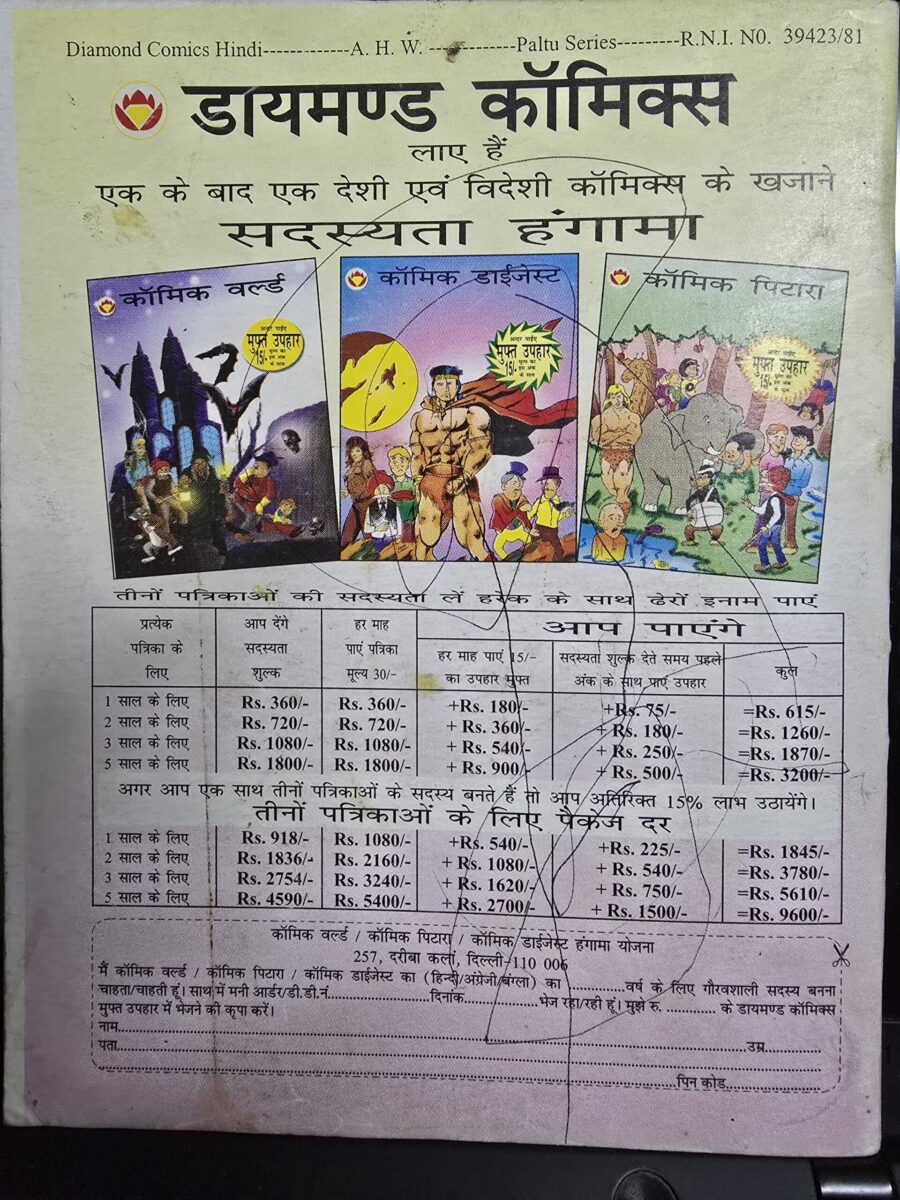 Diamond Comics Hindi-------------A. H. W. -------------Paltu Series---------R.N.I. N0. 39423/81
डायमण्ड कॉमिक्स
लाए हैं
एक के बाद एक देशी एवं विदेशी कॉमिक्स के खजाने
सदस्यता हंगामा
कॉमिक वर्ल्ड
अन्दर पाईए
मुफ्त उपहार
15/- मूल्य का
इस अंक
के साथ
कॉमिक डाईजेस्ट
अन्दर पाईए
मुफ्त उपहार
15/- मूल्य का
इस अंक
के साथ
कॉमिक पिटारा
अन्दर पाईए
मुफ्त उपहार
15/- मूल्य का
इस अंक
के साथ
तीनों पत्रिकाओं की सदस्यता लें हरेक के साथ ढेरों इनाम पाएं
प्रत्येक पत्रिका के लिए
आप देंगे सदस्यता शुल्क
हर माह पाएं पत्रिका मूल्य 30/-
आप पाएंगे
हर माह पाएं 15/- का उपहार मुफ्त
सदस्यता शुल्क देते समय पहले अंक के साथ पाएं उपहार
कुल
1 साल के लिए Rs. 360/- Rs. 360/- +Rs. 180/- +Rs. 75/- =Rs. 615/-
2 साल के लिए Rs. 720/- Rs. 720/- + Rs. 360/- + Rs. 180/- =Rs. 1260/-
3 साल के लिए Rs. 1080/- Rs. 1080/- + Rs. 540/- + Rs. 250/- =Rs. 1870/-
5 साल के लिए Rs. 1800/- Rs. 1800/- + Rs. 900/- + Rs. 500/- =Rs. 3200/-
अगर आप एक साथ तीनों पत्रिकाओं के सदस्य बनते हैं तो आप अतिरिक्त 15% लाभ उठायेंगे।
तीनों पत्रिकाओं के लिए पैकेज दर
1 साल के लिए Rs. 918/- Rs. 1080/- +Rs. 540/- +Rs. 225/- =Rs. 1845/-
2 साल के लिए Rs. 1836/- Rs. 2160/- + Rs. 1080/- + Rs. 540/- =Rs. 3780/-
3 साल के लिए Rs. 2754/- Rs. 3240/- + Rs. 1620/- + Rs. 750/- =Rs. 5610/-
5 साल के लिए Rs. 4590/- Rs. 5400/- + Rs. 2700/- + Rs. 1500/- =Rs. 9600/-
कॉमिक वर्ल्ड / कॉमिक पिटारा / कॉमिक डाईजेस्ट हंगामा योजना
257, दरीबा कलां, दिल्ली-110 006
मैं कॉमिक वर्ल्ड / कॉमिक पिटारा / कॉमिक डाईजेस्ट का (हिन्दी/अंग्रेजी/बंग्ला) का ..................वर्ष के लिए गौरवशाली सदस्य बनना
चाहता/चाहती हूं। साथ में मनी आर्डर/डी.डी.नं..................दिनांक.................भेज रहा/रही हूं। मुझे रु. ............ के डायमण्ड कॉमिक्स
मुफ्त उपहार में भेजने की कृपा करें।
नाम..................................................
पता..................................................उम्र..................
..................................................पिन कोड..................